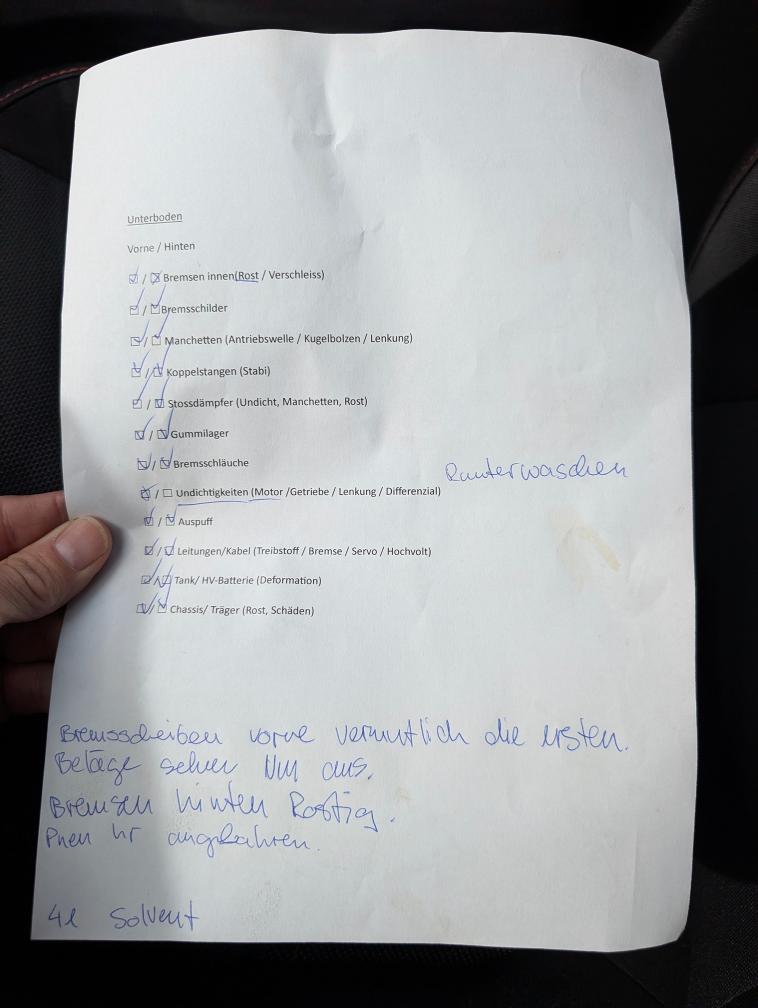 Unterboden
Vorne / Hinten
☑ / ☒ Bremsen innen(Rost / Verschleiss)
☑ / ☑ Bremsschilder
☑ / ☑ Manchetten (Antriebswelle / Kugelbolzen / Lenkung)
☑ / ☑ Koppelstangen (Stabi)
☑ / ☑ Stossdämpfer (Undicht, Manchetten, Rost)
☑ / ☑ Gummilager
☑ / ☑ Bremsschläuche
☒ / ☐ Undichtigkeiten (Motor /Getriebe / Lenkung / Differenzial) Runterwaschen
☑ / ☑ Auspuff
☑ / ☑ Leitungen/Kabel (Treibstoff / Bremse / Servo / Hochvolt)
☑ / ☑ Tank/ HV-Batterie (Deformation)
☑ / ☑ Chassis/ Träger (Rost, Schäden)
Bremsscheiben vorne vermutlich die ersten.
Beläge sehen aus.
Bremsen hinten Rostig.
Pneu hr angefahren.
4l Solvent